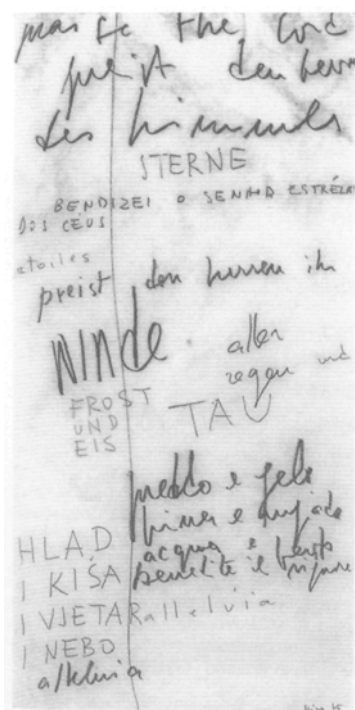 praise the lord
preist den herrn
des himmels
STERNE
BENDIZEI O SENHOR ESTRÊLAS
DOS CÉUS
etoiles
preist den herren ihr
WINDE. aller
regen und
FROST TAU
UND
EIS
freddo e gelo
acqua e
benedite il signore
HLAD
I KIŠA
I VJETAR alleluia
I NEBO
alleluia